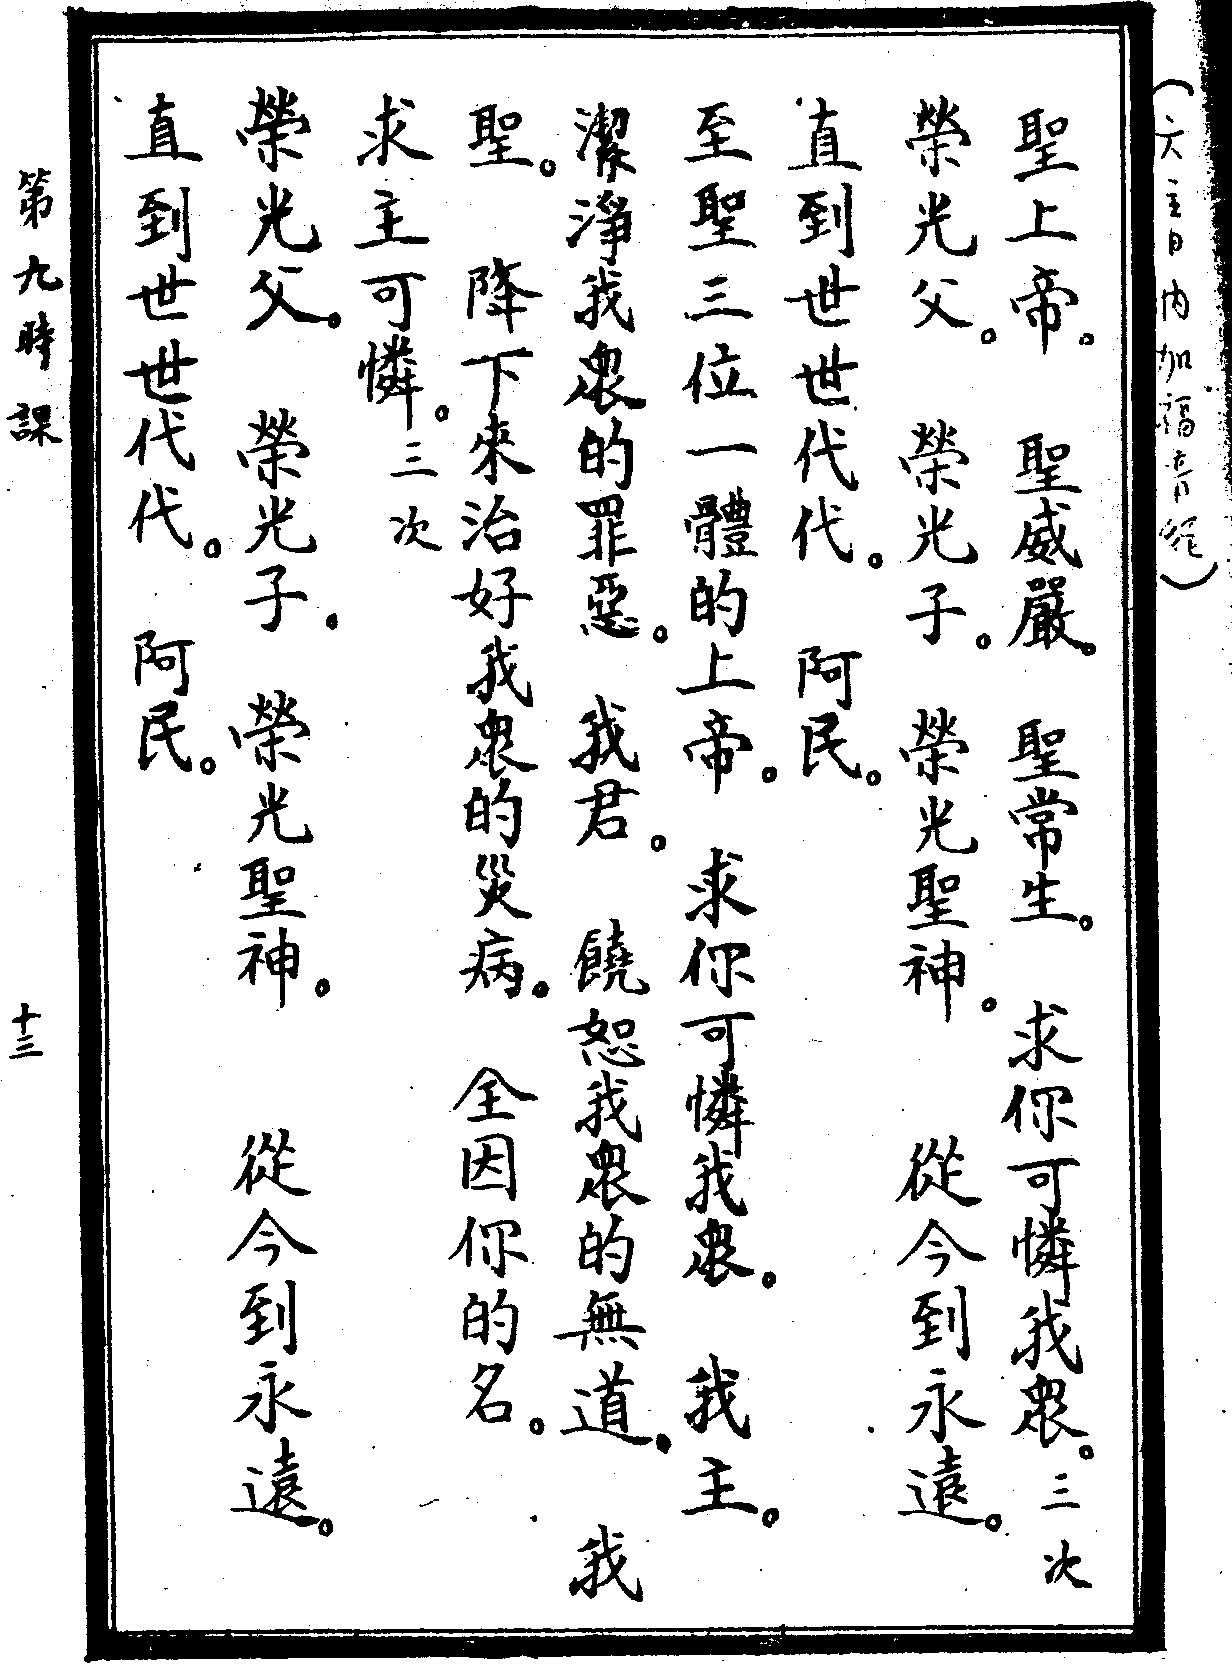 （六主日內加福音經）
聖上帝。聖威嚴。聖常生。求你可憐我眾。三次
榮光父。榮光子。榮光聖神。從今到永遠。
直到世世代代。阿民。
至聖三位一體的上帝。求你可憐我眾。我主。
潔淨我眾的罪惡。我君。饒恕我眾的無道。我
聖。降下來治好我眾的災病。全因你的名。
求主可憐。三次
榮光父。榮光子。榮光聖神。從今到永遠。
直到世世代代。阿民。
第九時課
十三